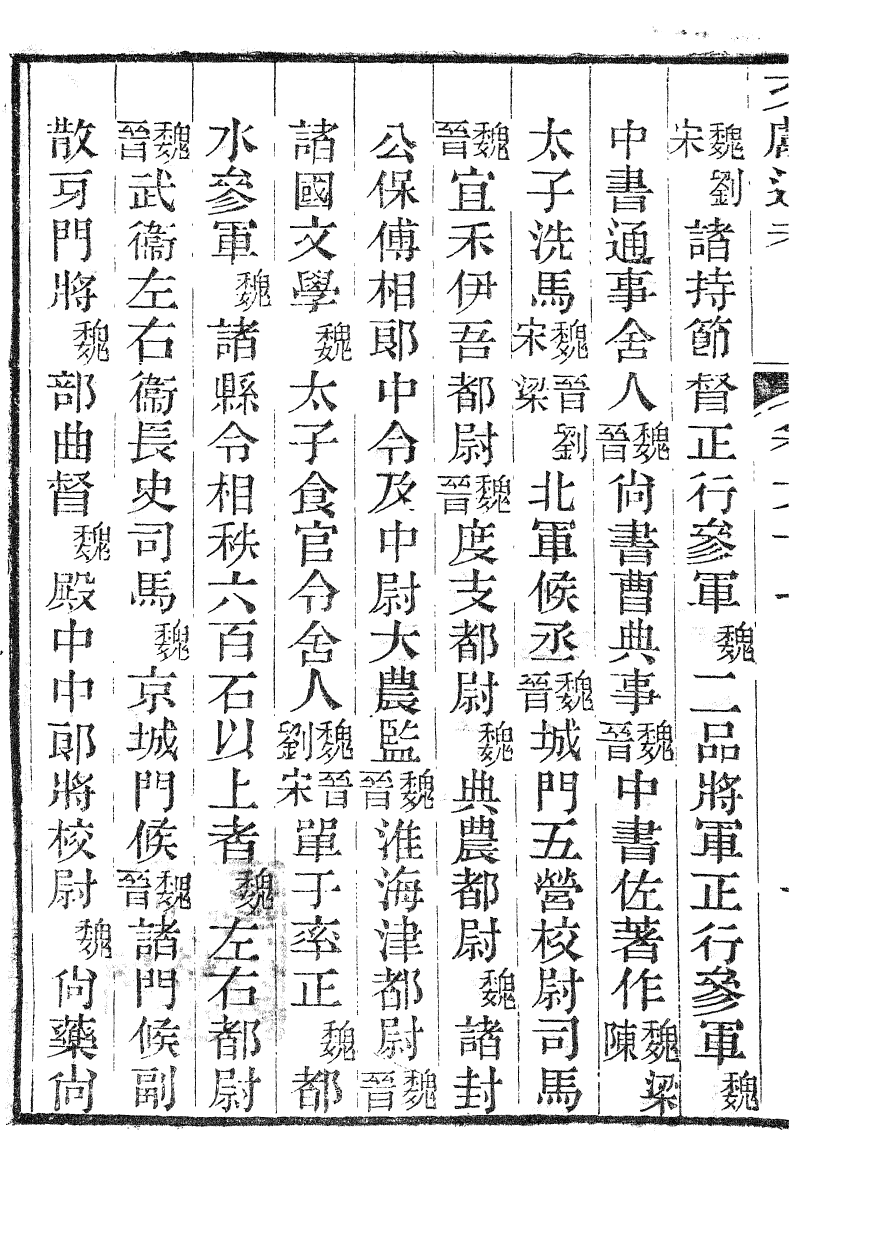 魏劉宋諸持節督正行參軍魏二品將軍正行參軍魏
中書通事舍人魏晉尚書曹典事魏晉中書佐著作魏梁陳
太子洗馬魏晉劉宋梁北軍候丞魏晉城門五營校尉司馬
魏晉宜禾伊吾都尉魏晉度支都尉魏典農都尉魏諸封
公保傅相郎中令及中尉大農監魏晉淮海津都尉魏晉
諸國文學魏太子食官令舍人魏晉劉宋單于率正魏都
水參軍魏諸縣令相秩六百石以上者魏左右都尉
魏晉武衞左右衞長史司馬魏京城門候魏晉諸門候副
散牙門將魏部曲督魏殿中中郎將校尉魏尚藥尚